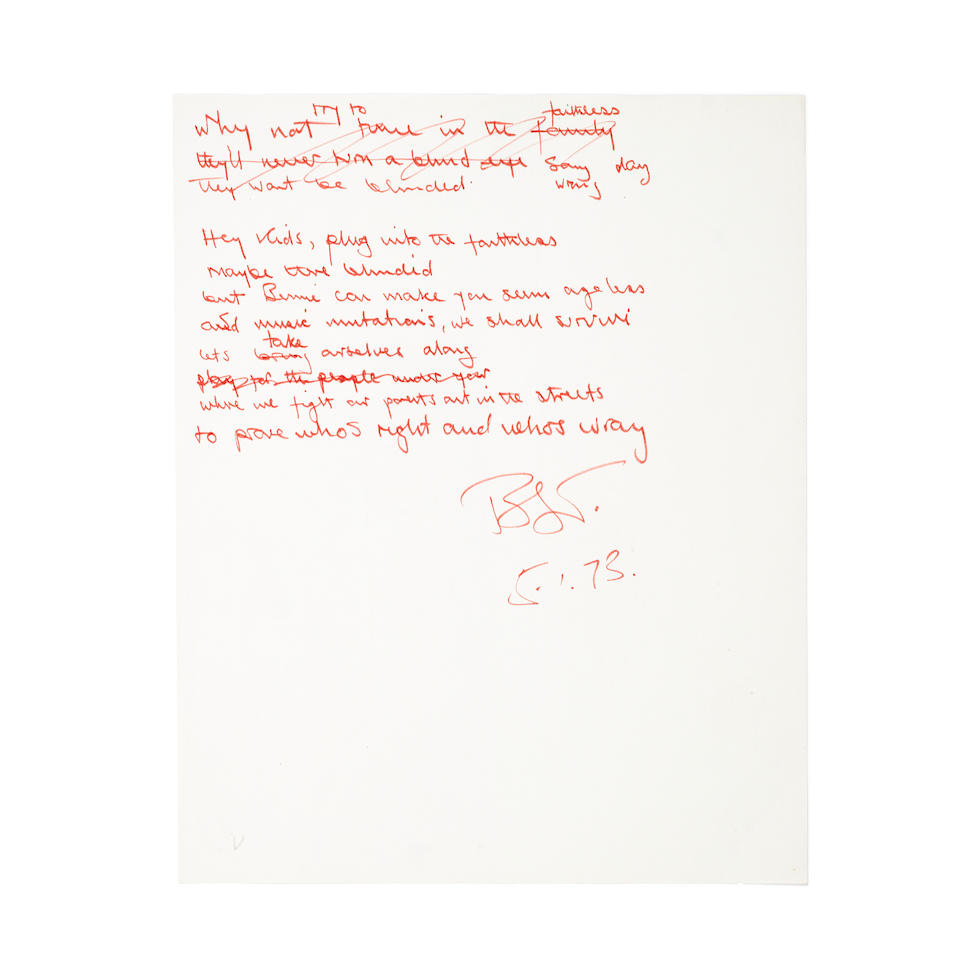 try to faithless
why not tune in the family
they'll never turn a blind eye Sang day
they want be blinded. wrong
Hey kids, plug into the faithless
maybe there blinded
but Bennie can make you seem ageless
and music mutations, we shall survive
lets bring take ourselves along
play for the people under your
where we fight our parents out in the streets
to prove whos right and whos wrong
5.1.73.